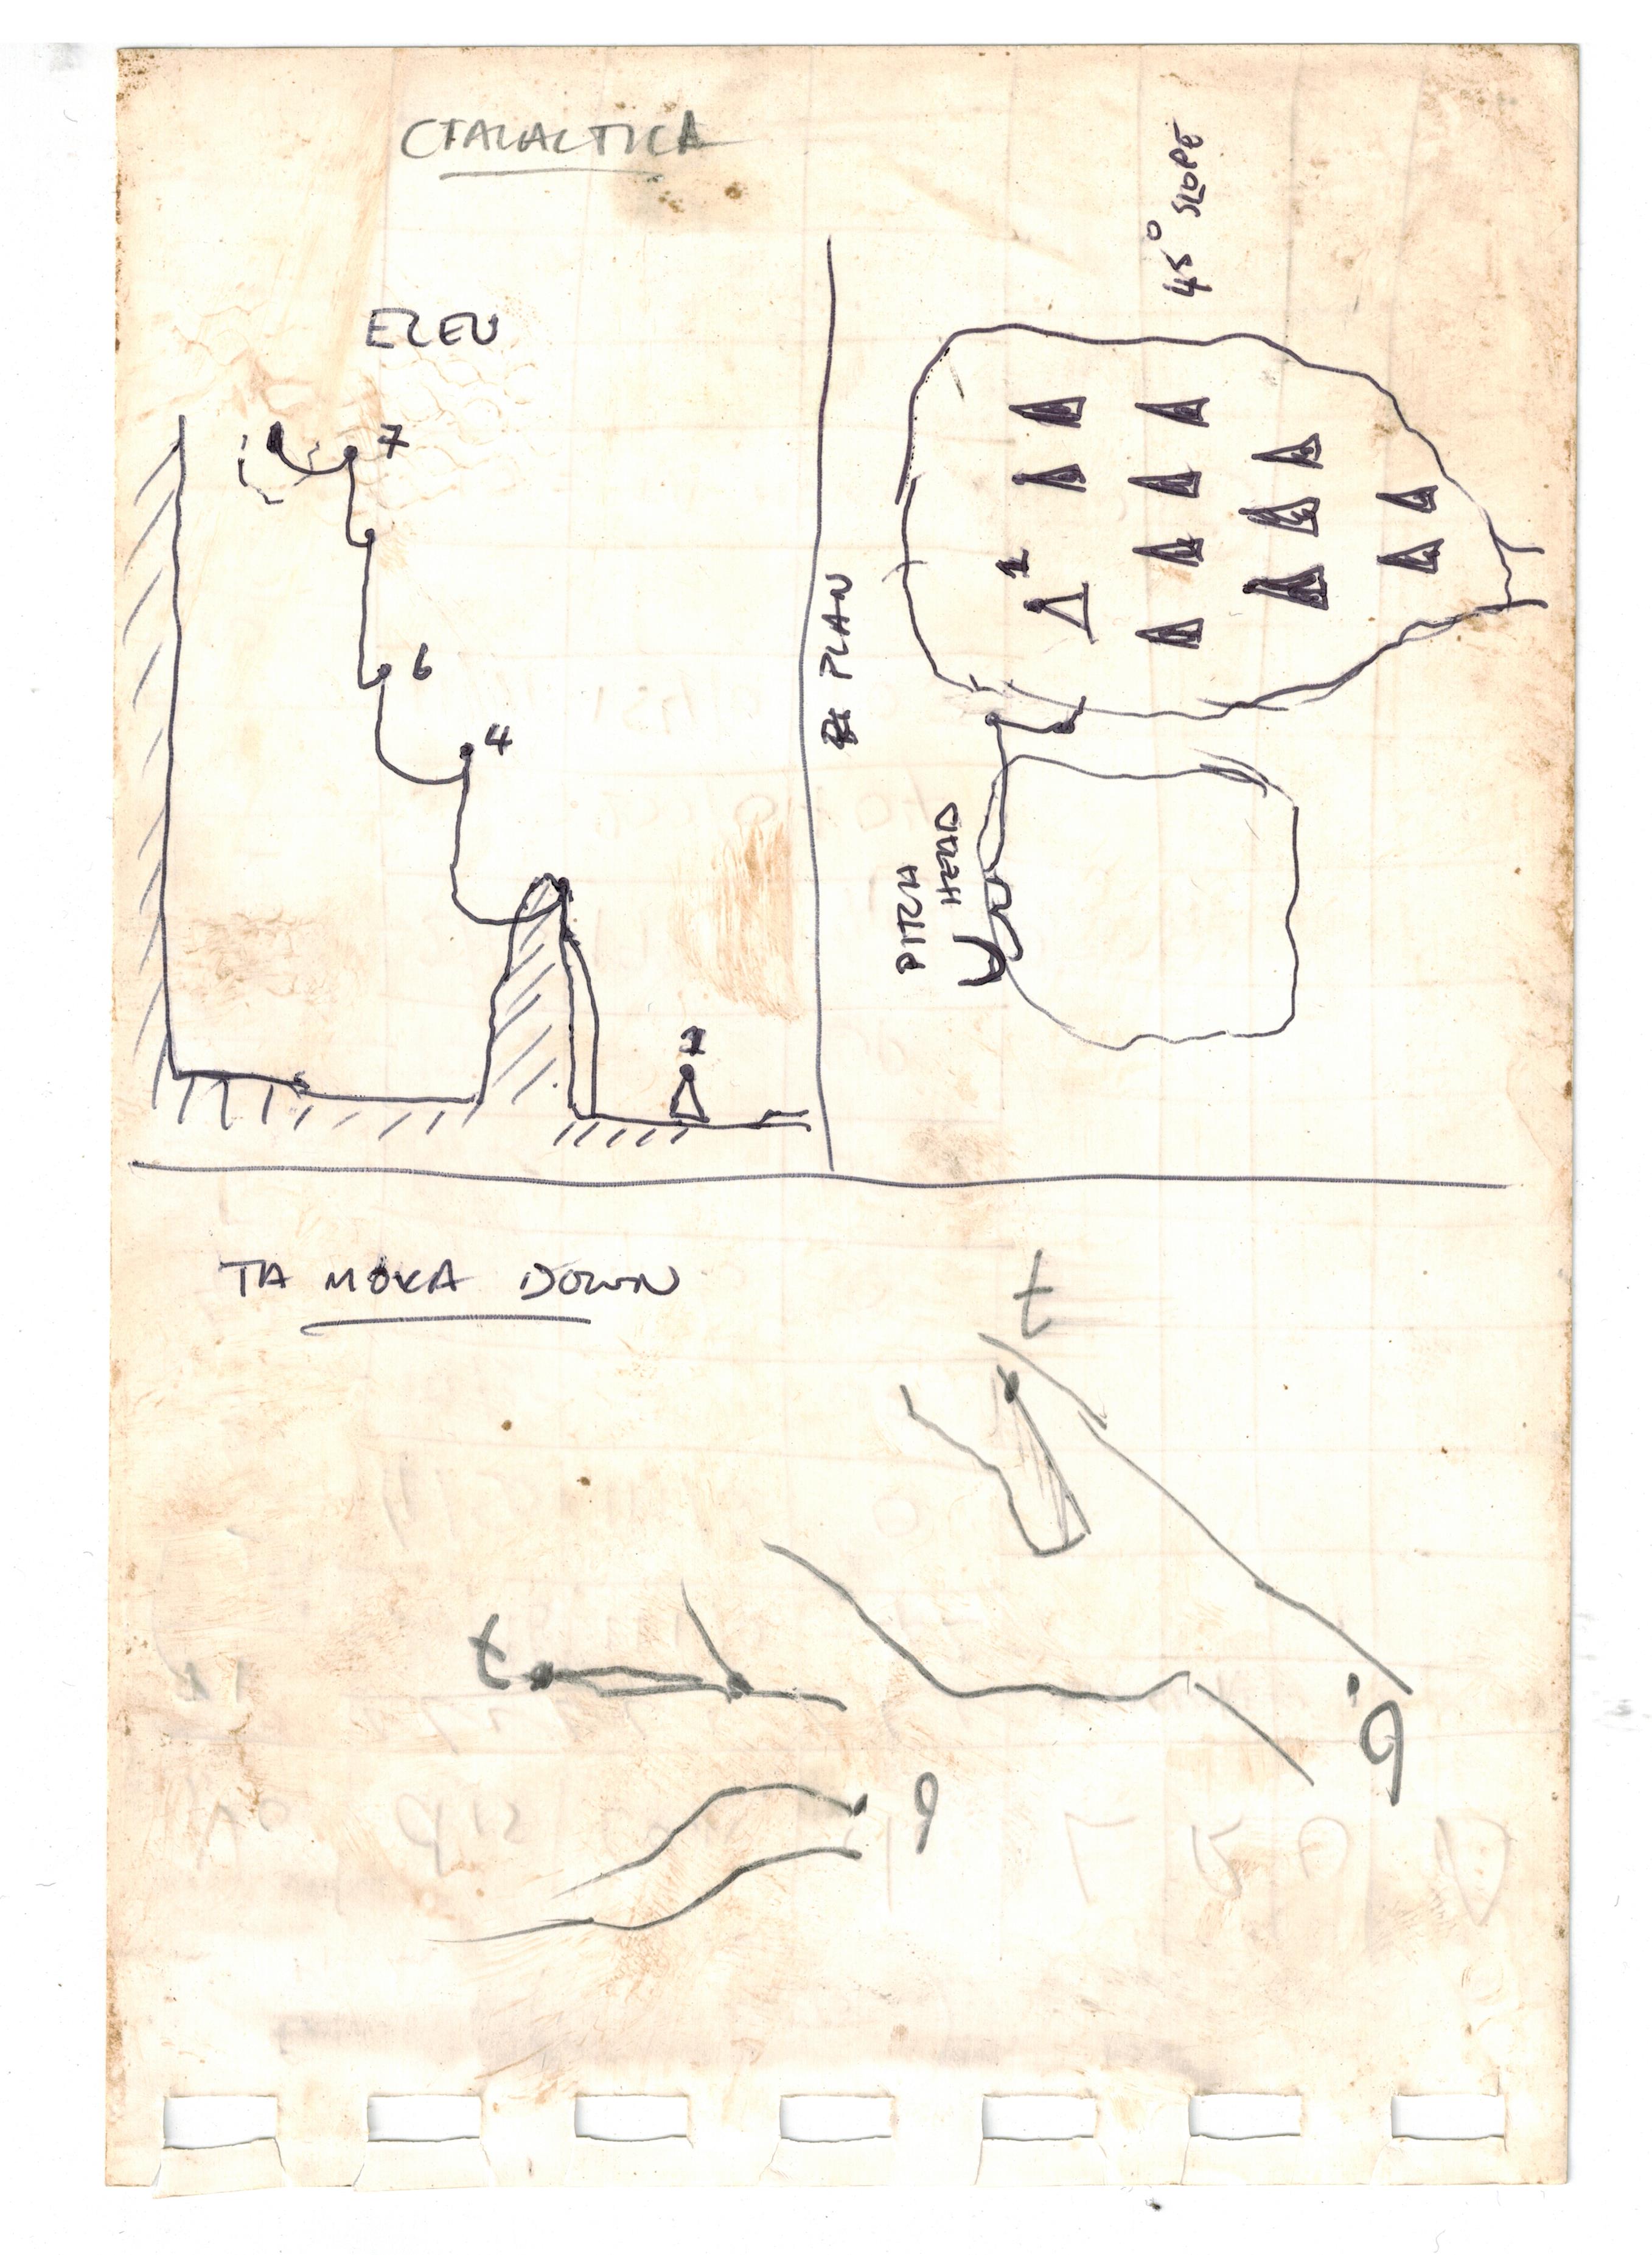 CTALACTICA
ELEV
7
6
4
1
PLAN
45° SLOPE
1
PITCH
HEAD
TA MOKA DOWN
t
t
9
9